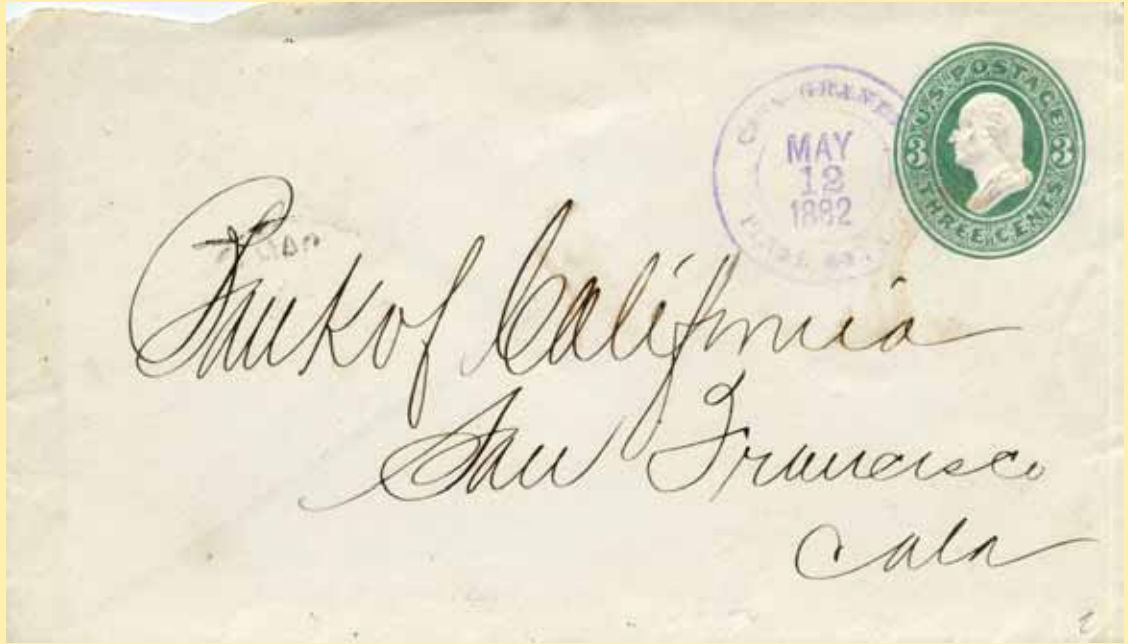 U.S. POSTAGE
3 3
THREE CENTS
MAY
12
1882
Bank of California
San Francisco
Cala